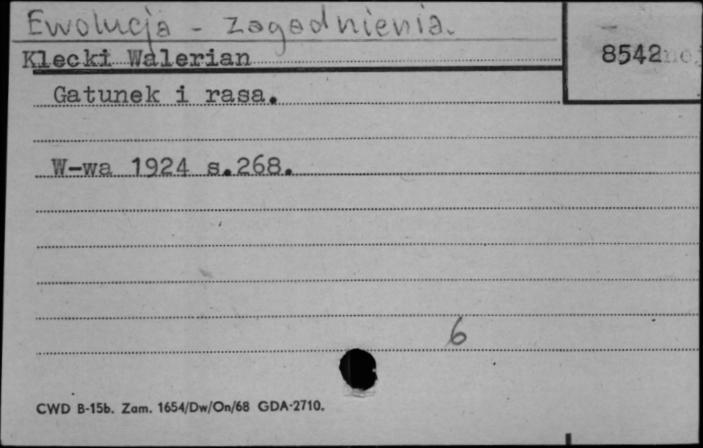 Ewolucja - zagadnienia.
Klecki Walerian
8542
Gatunek i rasa.
W-wa 1924 s.268.
6
CWD B-15b. Zam. 1654/Dw/On/68 GDA-2710.